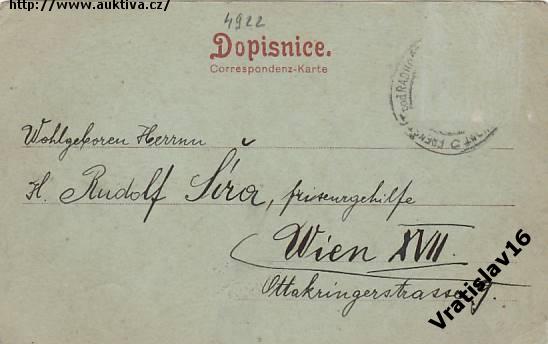 http://www.auktiva.cz/
4922
Dopisnice.
Correspondenz-Karte
Wohlgeboren Herrn
H. Rudolf Šíra, friseurgehilfe
Wien XVII.
Ottakringerstrasse
Vratislav16